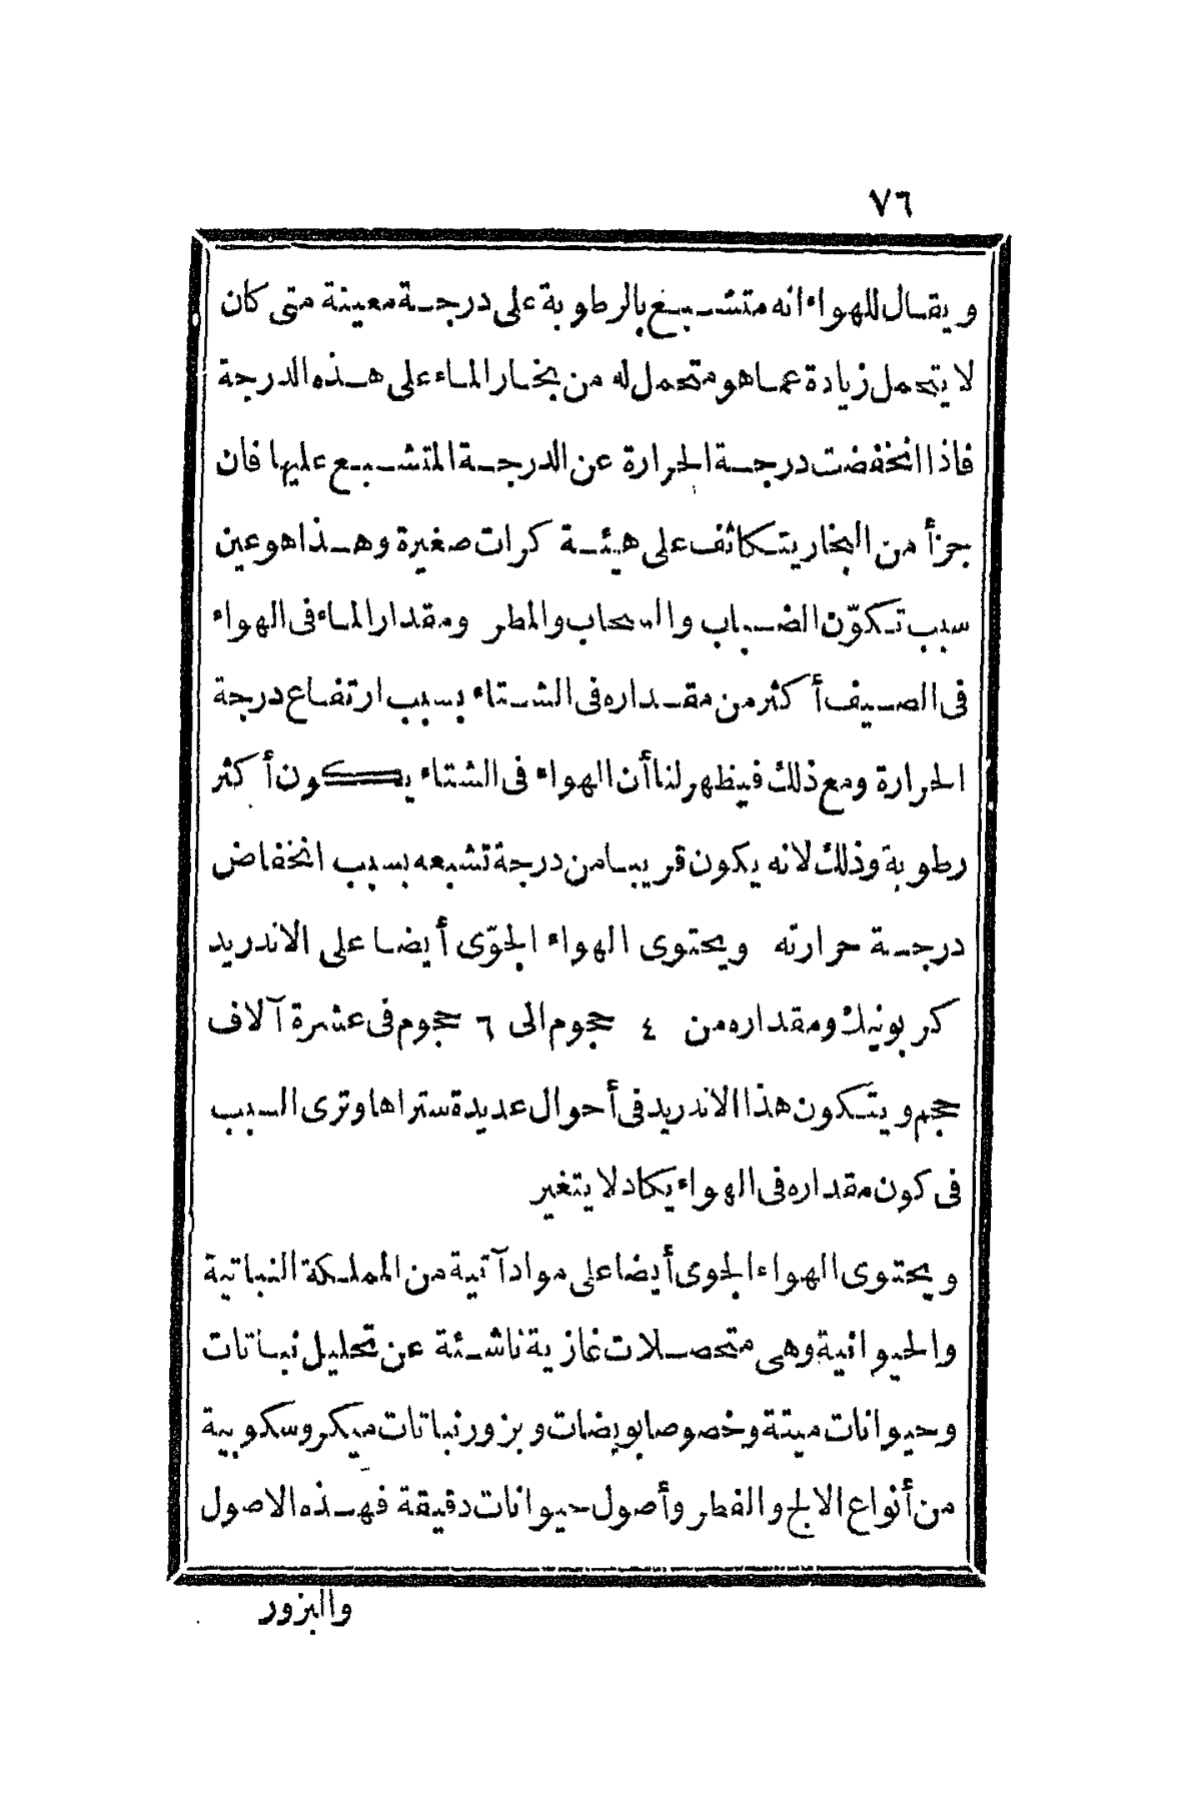 ٧٦
ويقال للهواء انه متشبع بالرطوبة على درجة معينة متى كان
لا يتحمل زيادة عما هو متحمل له من بخار الماء على هذه الدرجة
فاذا انخفضت درجة الحرارة عن الدرجة المتشبع عليها فان
جزأ من البخار يتكاثف على هيئة كرات صغيرة وهذا هو عين
سبب تكوّن الضباب والسحاب والمطر ومقدار الماء فى الهواء
فى الصيف أكثر من مقداره فى الشتاء بسبب ارتفاع درجة
الحرارة ومع ذلك فيظهر لنا أن الهواء فى الشتاء يكون أكثر
رطوبة وذلك لانه يكون قريبا من درجة تشبعه بسبب انخفاض
درجة حرارته ويحتوى الهواء الجوّى أيضا على الاندريد
كربونيك ومقداره من ٤ حجوم الى ٦ حجوم فى عشرة آلاف
حجم ويتكون هذا الاندريد فى أحوال عديدة ستراها وترى السبب
فى كون مقداره فى الهواء يكاد لا يتغير
ويحتوى الهواء الجوى أيضا على مواد آتية من المملكة النباتية
والحيوانية وهى متحصلات غازية ناشئة عن تحليل نباتات
وحيوانات ميتة وخصوصا بويضات وبزور نباتات ميكروسكوبية
من أنواع الالج والفطر وأصول حيوانات دقيقة فهذه الاصول
والبزور